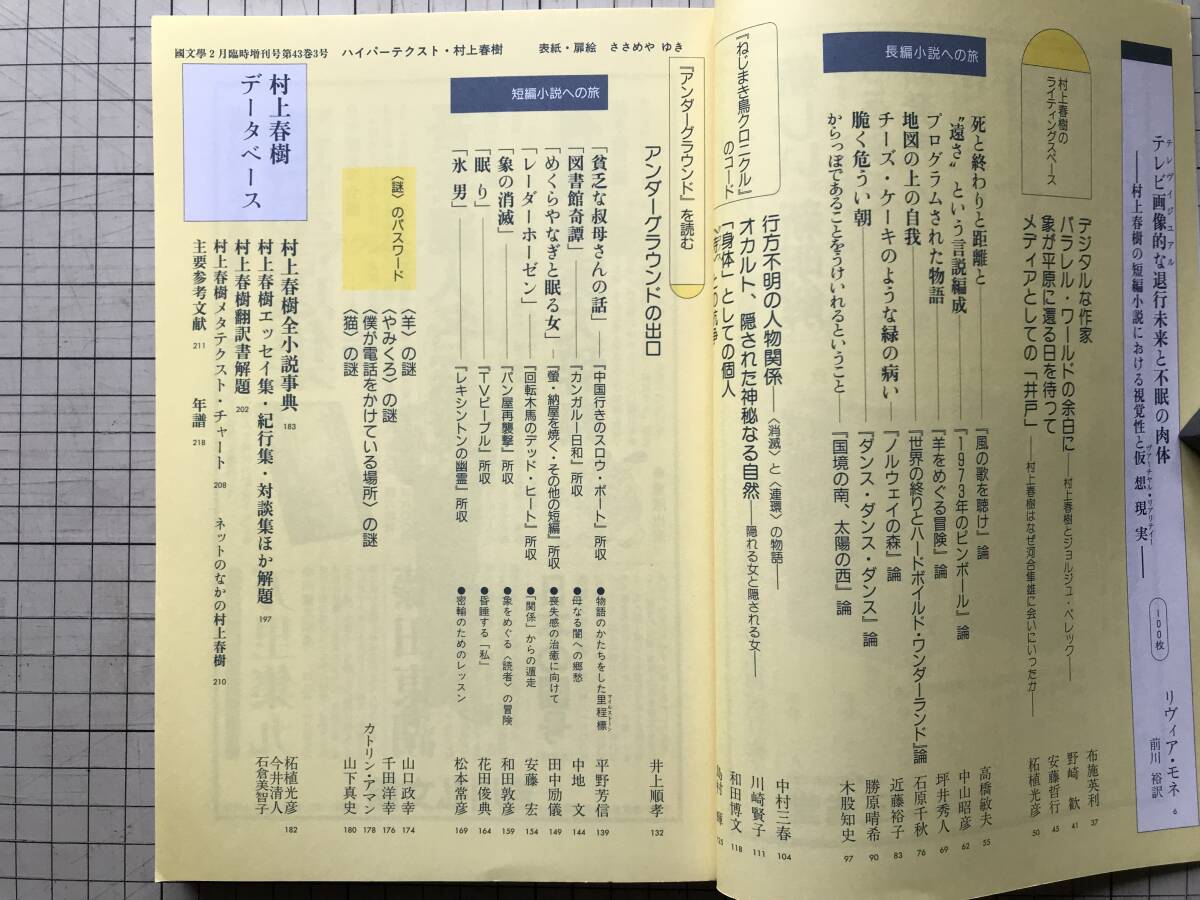 テレビ画像的な退行未来と不眠の肉体
テレヴィジュアル
――村上春樹の短編小説における視覚性と仮想現実――
ヴァーチャル・リアリティー
100枚
リヴィア・モネ
前川 裕訳
6
村上春樹の
ライティングスペース
デジタルな作家
布施英利
37
パラレル・ワールドの余白に
村上春樹とジョルジュ・ペレック――
野崎 歓
41
象が平原に還る日を待って
安藤哲行
45
メディアとしての「井戸」
――村上春樹はなぜ河合隼雄に会いにいったか――
柘植光彦
50
長編小説への旅
死と終わりと距離と
『風の歌を聴け』論
高橋敏夫
55
“遠さ”という言説編成
『1973年のピンボール』論
中山昭彦
62
プログラムされた物語
『羊をめぐる冒険』論
坪井秀人
69
地図の上の自我
『世界の終りとハードボイルド・ワンダーランド』論
石原千秋
76
チーズ・ケーキのような緑の病い
『ノルウェイの森』論
近藤裕子
83
脆く危うい朝
『ダンス・ダンス・ダンス』論
勝原晴希
90
からっぽであることをうけいれるということ
『国境の南、太陽の西』論
木股知史
97
『ねじまき鳥クロニクル』
のコード
行方不明の人物関係
――〈消滅〉と〈連環〉の物語――
中村三春
104
オカルト、隠された神秘なる自然
――隠れる女と隠される女――
川崎賢子
111
「身体」としての個人
和田博文
118
國文學2月臨時増刊号第43巻3号 ハイパーテクスト・村上春樹 表紙・扉絵 ささめや ゆき
『アンダーグラウンド』を読む
アンダーグラウンドの出口
井上順孝
132
短編小説への旅
「貧乏な叔母さんの話」
『中国行きのスロウ・ボート』所収
●物語のかたちをした里程標
マイルストーン
平野芳信
139
「図書館奇譚」
『カンガルー日和』所収
●母なる闇への郷愁
中地 文
144
「めくらやなぎと眠る女」
『螢・納屋を焼く・その他の短編』所収
●喪失感の治癒に向けて
田中励儀
149
「レーダーホーゼン」
『回転木馬のデッド・ヒート』所収
●「関係」からの遁走
安藤 宏
154
「象の消滅」
『パン屋再襲撃』所収
●象をめぐる〈読者〉の冒険
和田敦彦
159
「眠り」
『TVピープル』所収
●昏睡する「私」
花田俊典
164
「氷男」
『レキシントンの幽霊』所収
●密輸のためのレッスン
松本常彦
169
〈謎〉のパスワード
〈羊〉の謎
山口政幸
174
〈やみくろ〉の謎
千田洋幸
176
〈僕が電話をかけている場所〉の謎
カトリン・アマン
178
〈猫〉の謎
山下真史
180
村上春樹
データベース
柘植光彦
今井清人
石倉美智子
182
村上春樹全小説事典
183
村上春樹エッセイ集・紀行集・対談集ほか解題
197
村上春樹翻訳書解題
202
村上春樹メタテクスト・チャート
208
ネットのなかの村上春樹
210
主要参考文献
211
年譜
218